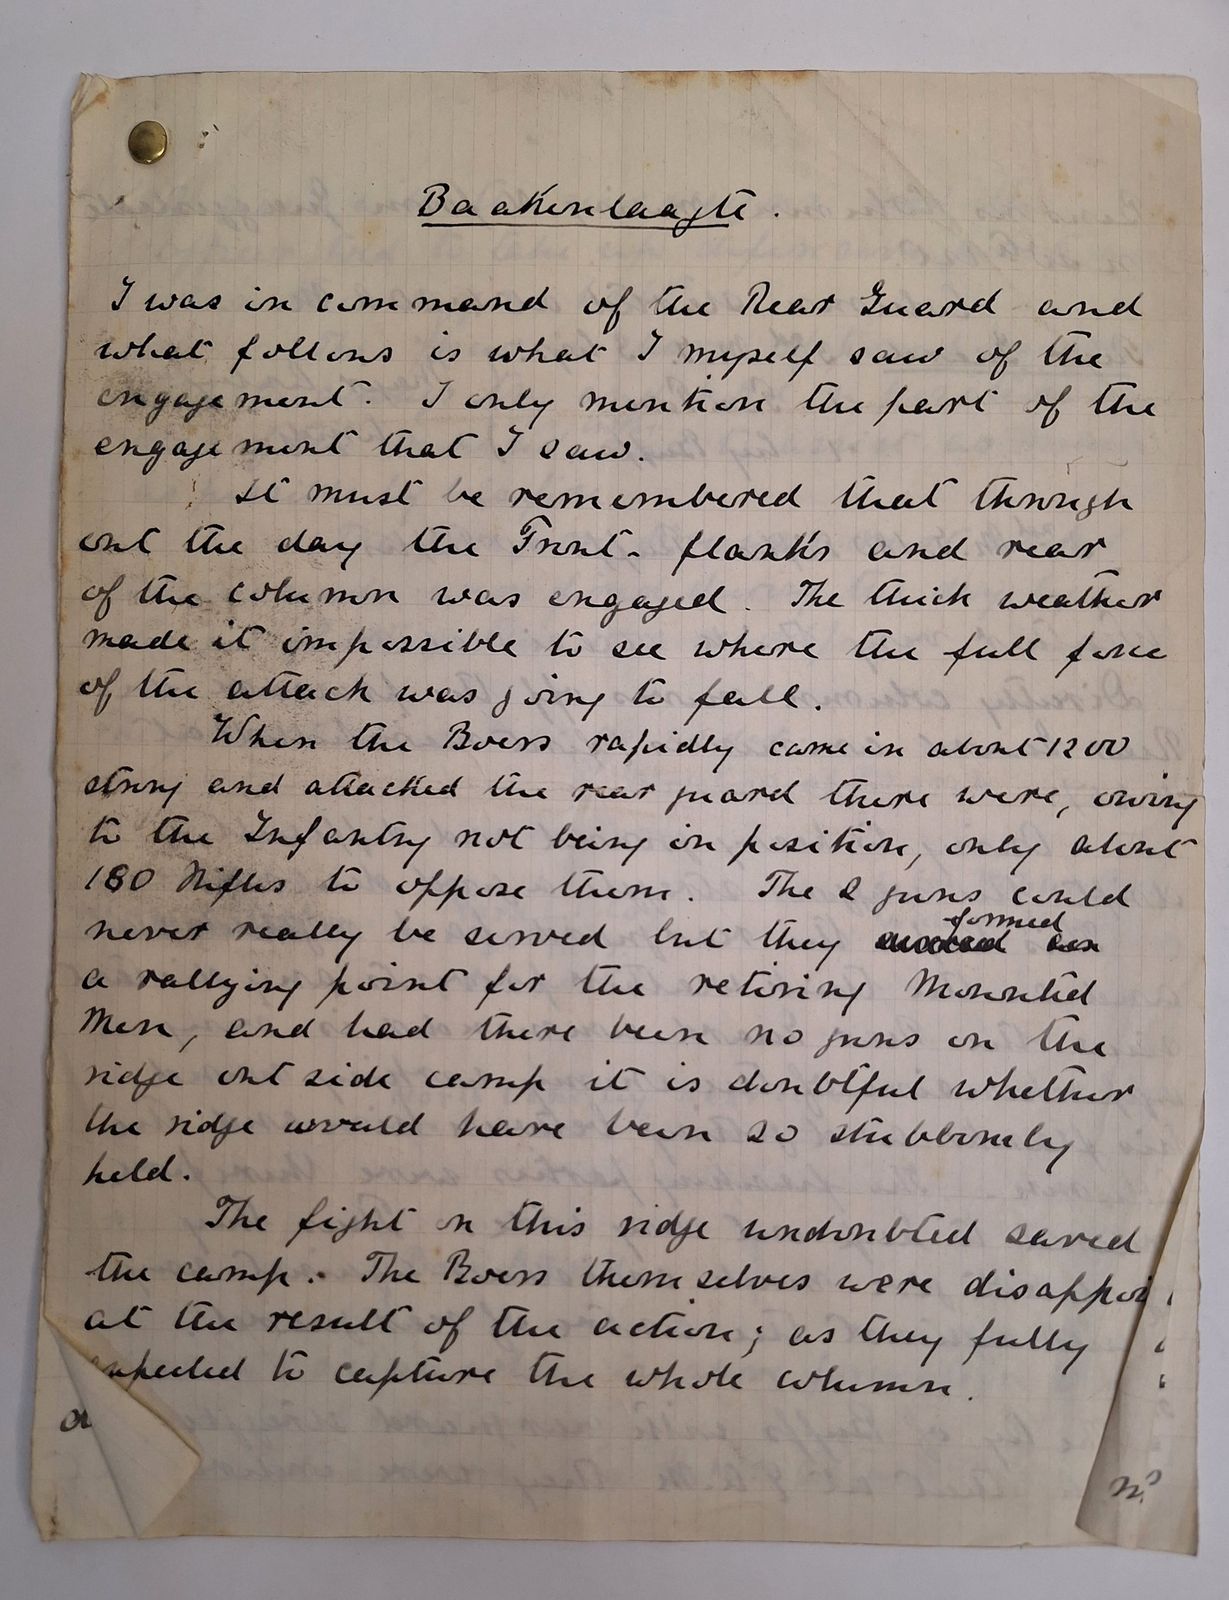 Baakenlaagte.
I was in command of the Rear Guard and
what follows is what I myself saw of the
engagement. I only mention the part of the
engagement that I saw.
It must be remembered that through
out the day the Front - flanks and rear
of the column was engaged. The thick weather
made it impossible to see where the full force
of the attack was going to fall.
When the Boers rapidly came in about 1200
strong and attacked the rear guard there were, owing
to the Infantry not being in position, only about
180 Rifles to oppose them. The 2 guns could
never really be served but they formed
a rallying point for the retiring Mounted
Men, and had there been no guns on the
ridge outside camp it is doubtful whether
the ridge would have been so stubbornly
held.
The fight on this ridge undoubted saved
the camp. The Boers themselves were disappoi
at the result of the action; as they fully
expected to capture the whole column.